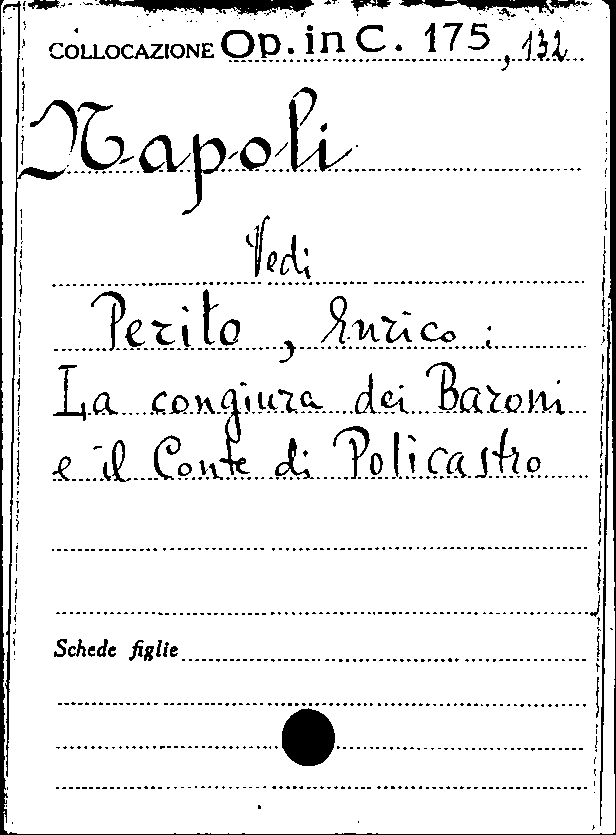 COLLOCAZIONE Op. in C. 175, 132
Napoli
Vedi
Perito, Enrico:
La congiura dei Baroni
e il Conte di Policastro
Schede figlie